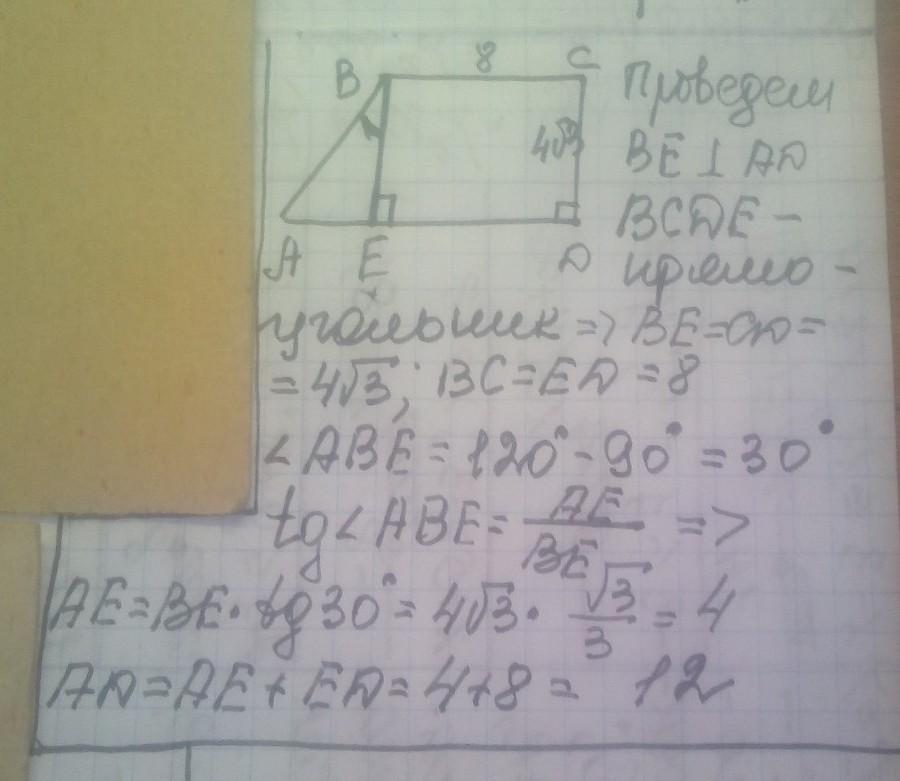 B 8 C
4√3
A E D
Проведем
BE ⊥ AD
BCDE –
прямо -
угольник => BE = CD =
= 4√3; BC = ED = 8
∠ABE = 120° - 90° = 30°
tg∠ABE = AE/BE =>
AE = BE · tg30° = 4√3 · √3/3 = 4
AD = AE + ED = 4+8 = 12